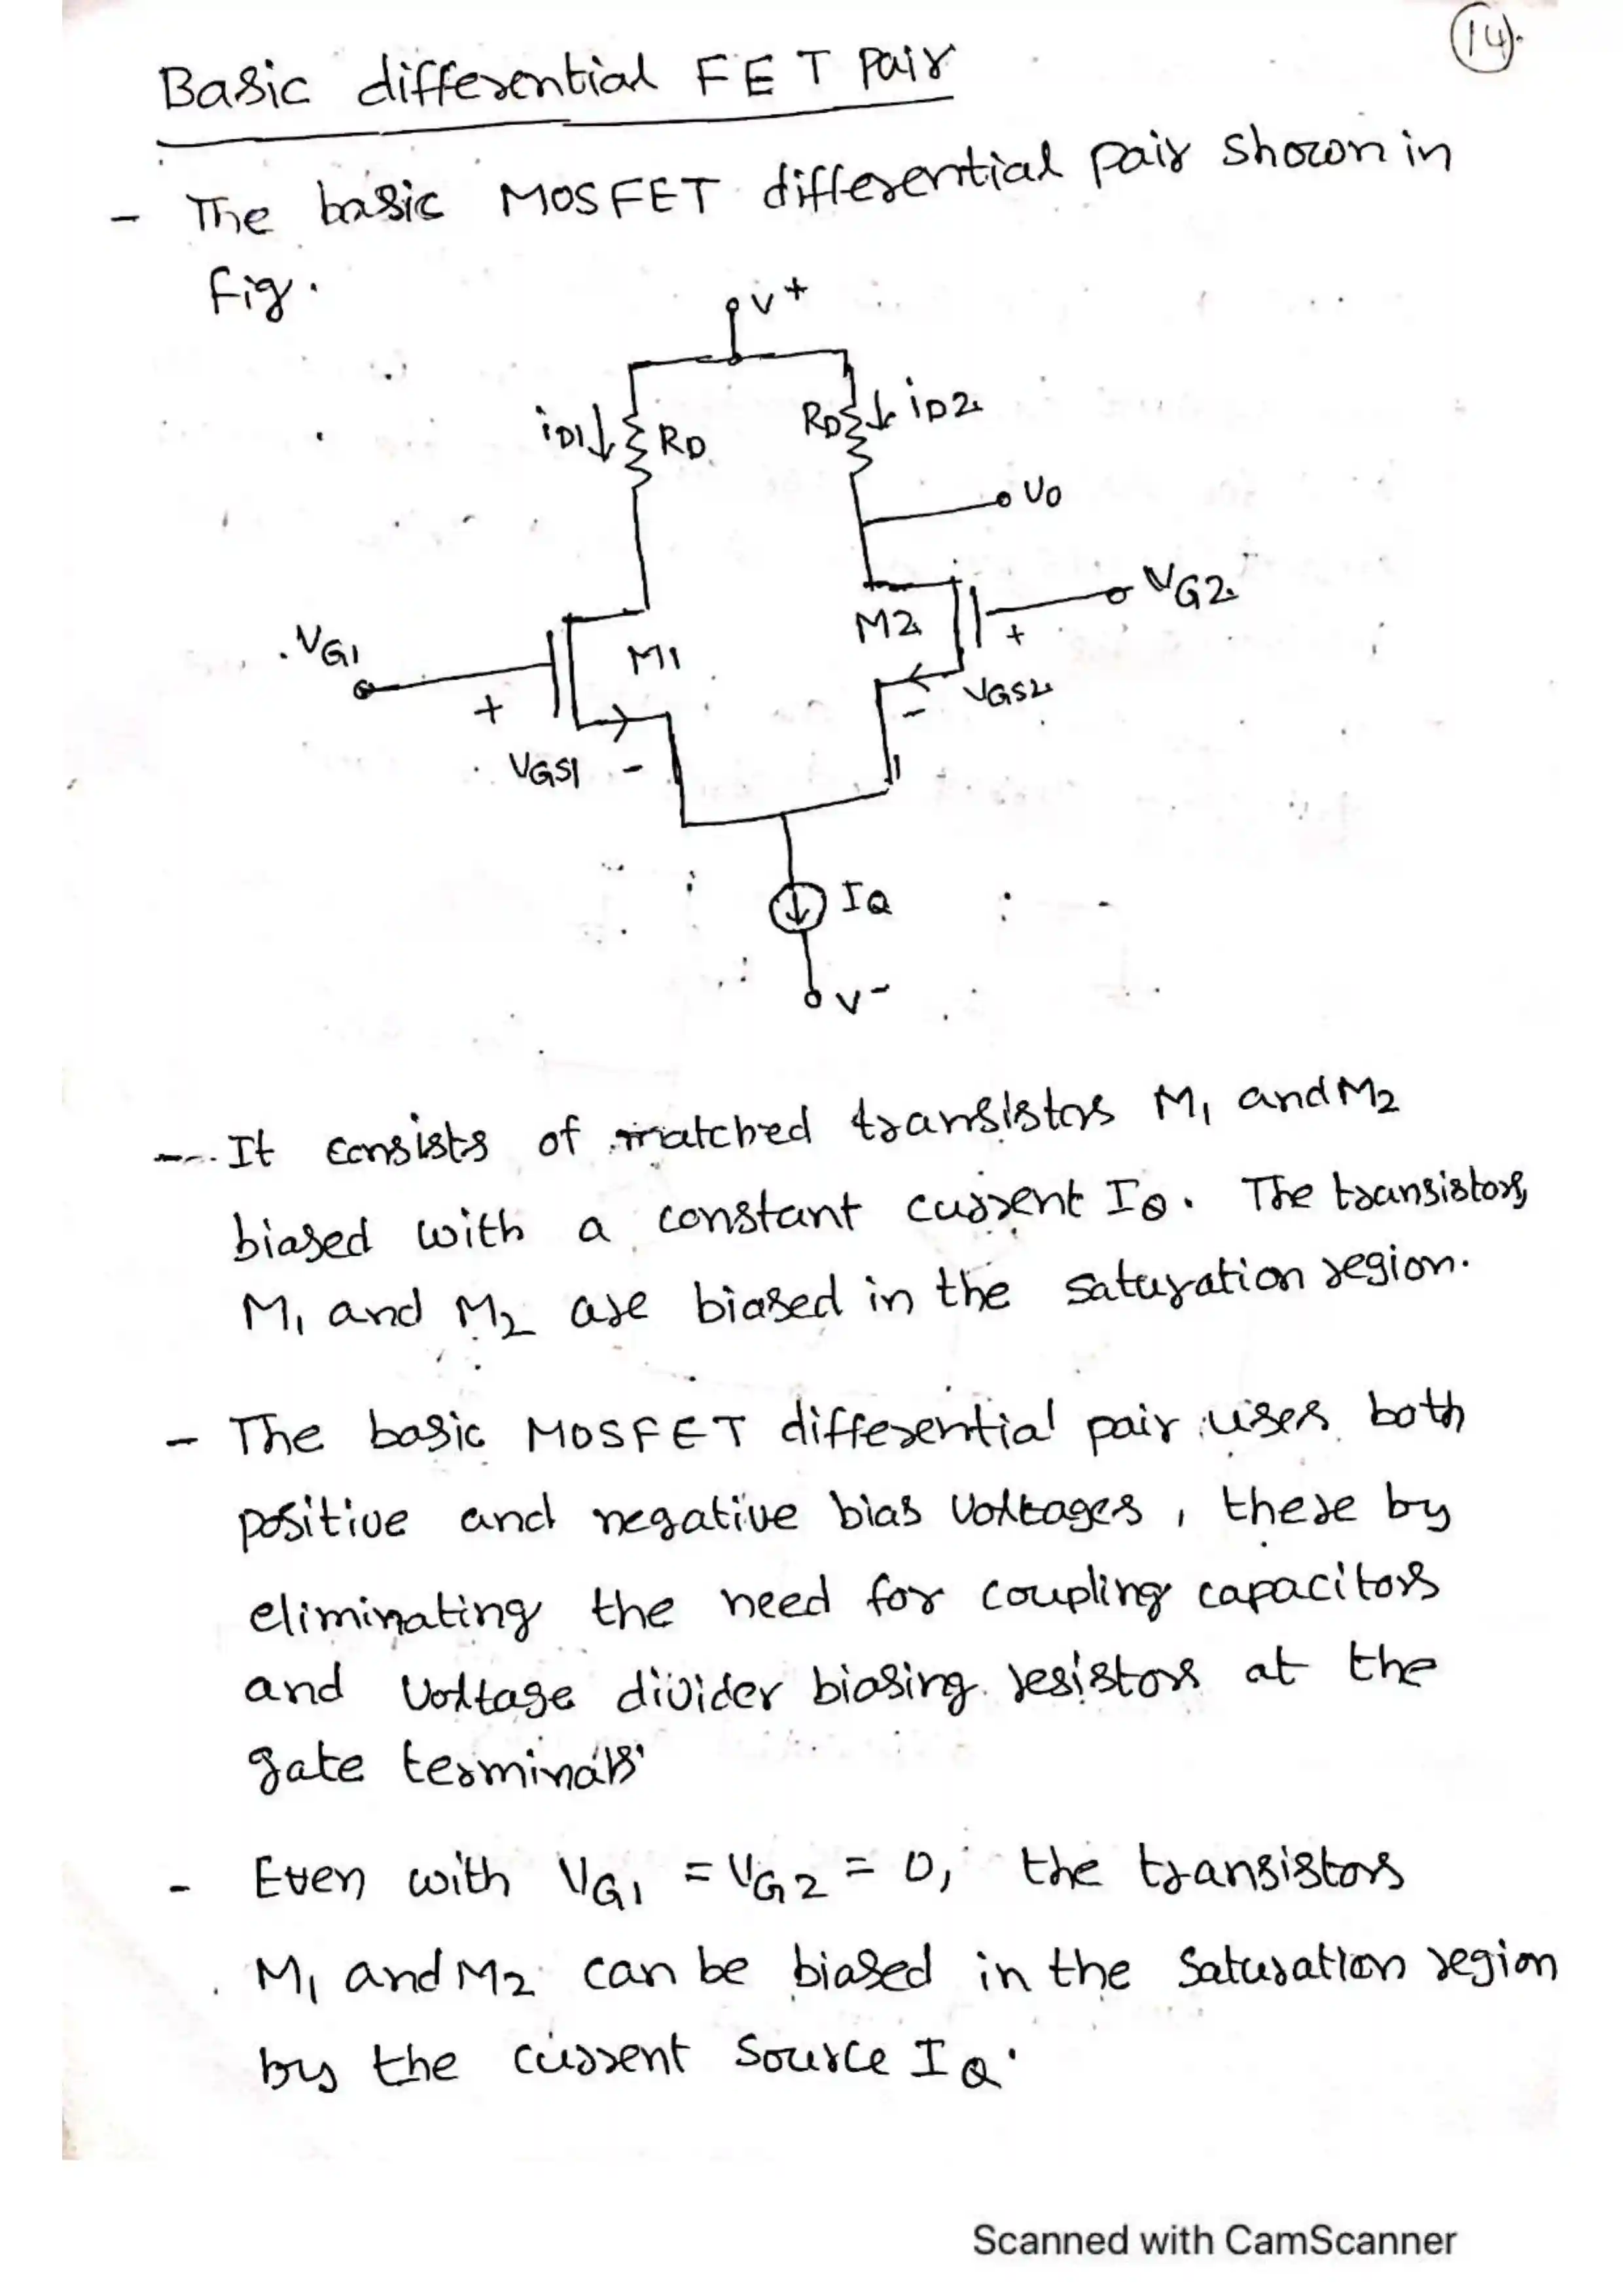 14.
Basic differential FET pair
- The basic MOSFET differential pair shown in
fig.
V+
iD1 RD RD iD2
vo
VG2
M2
+
VG1
M1
+
VGS2
-
VGS1 -
IQ
V-
- It consists of matched transistors M1 and M2
biased with a constant current IQ. The transistors
M1 and M2 are biased in the saturation region.
- The basic MOSFET differential pair uses both
positive and negative bias voltages, there by
eliminating the need for coupling capacitors
and voltage divider biasing resistors at the
gate terminals.
- Even with VG1 = VG2 = 0, the transistors
M1 and M2 can be biased in the saturation region
by the current source IQ.
Scanned with CamScanner